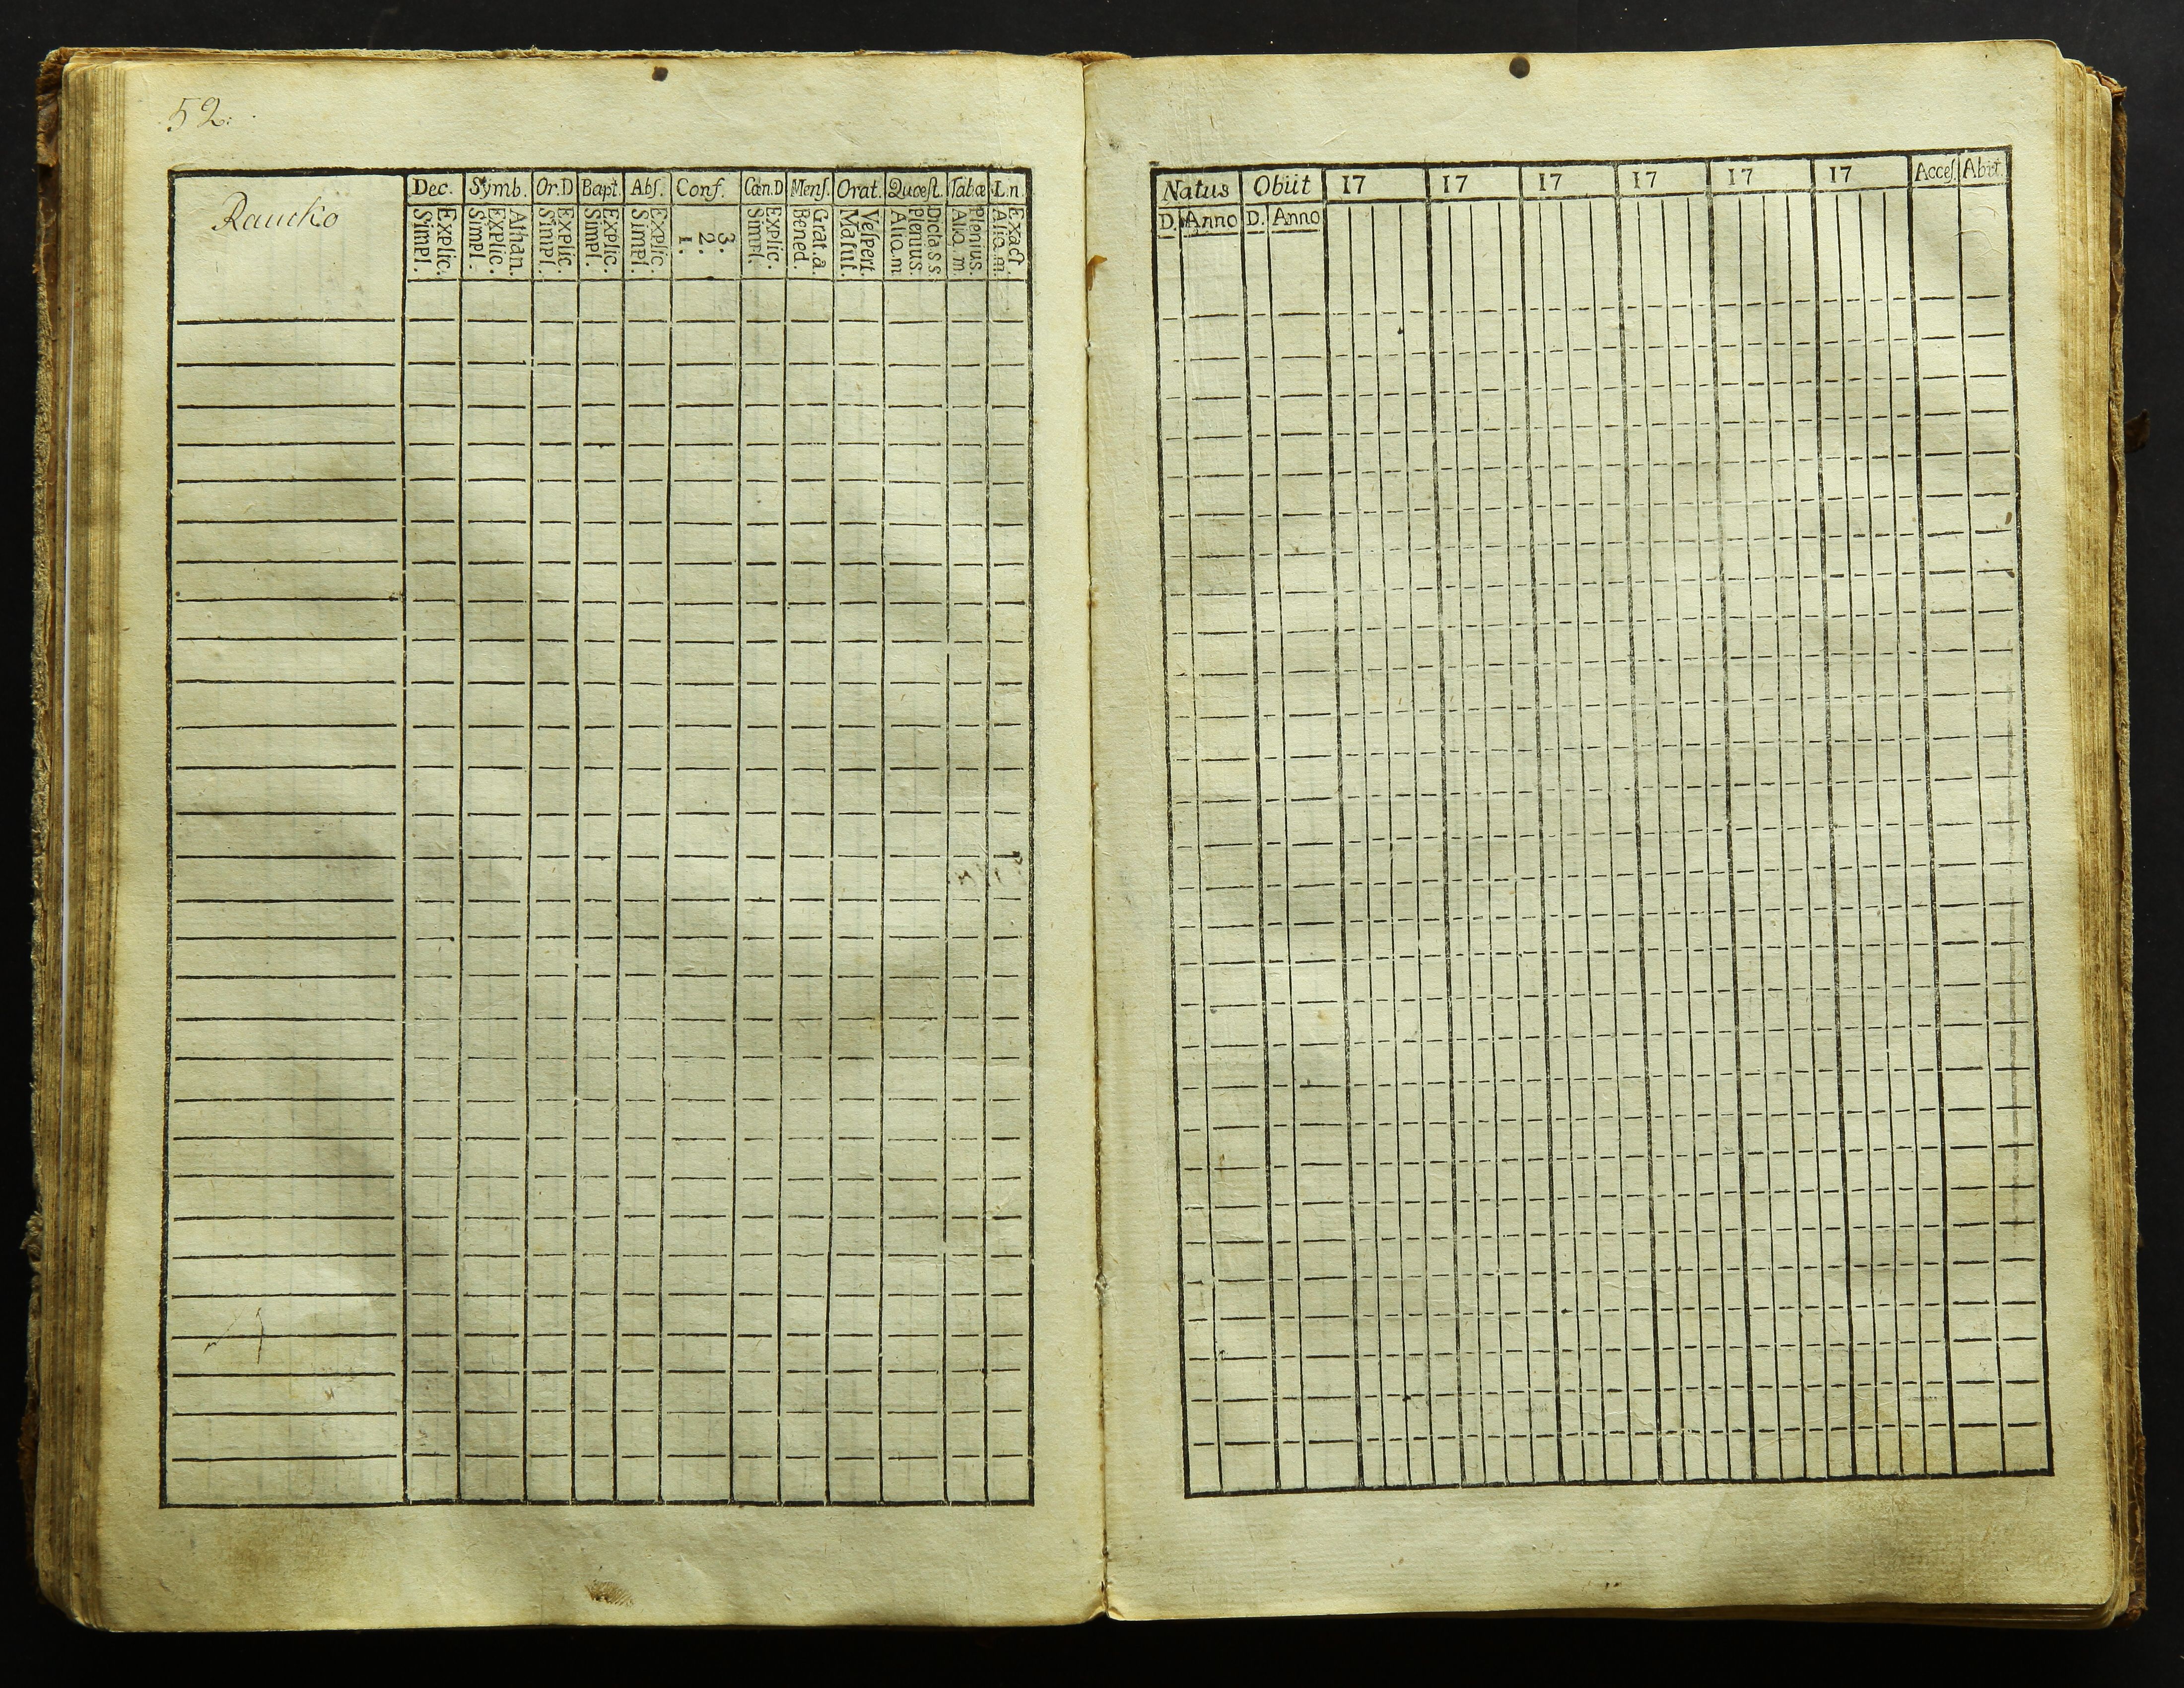 52.
Dec. Symb. Or.D Bapt. Abſ. Conf. Cœn.D Menſ. Orat. Quæſt. Tabæ L.n.
Raucko
Explic. Simpl. Athan. Explic. Simpl. Explic. Simpl. Explic. Simpl. Explic. Simpl. 3. 2. 1. Explic. Simpl. Grat.a. Bened. Veſpert. Matut. Dicta s s. Plenius. Aliq.m. Plenius. Aliq.m. Exact. Aliq.m.
Natus Obiit 17 17 17 17 17 17 Acceſ. Abit.
D. Anno D. Anno